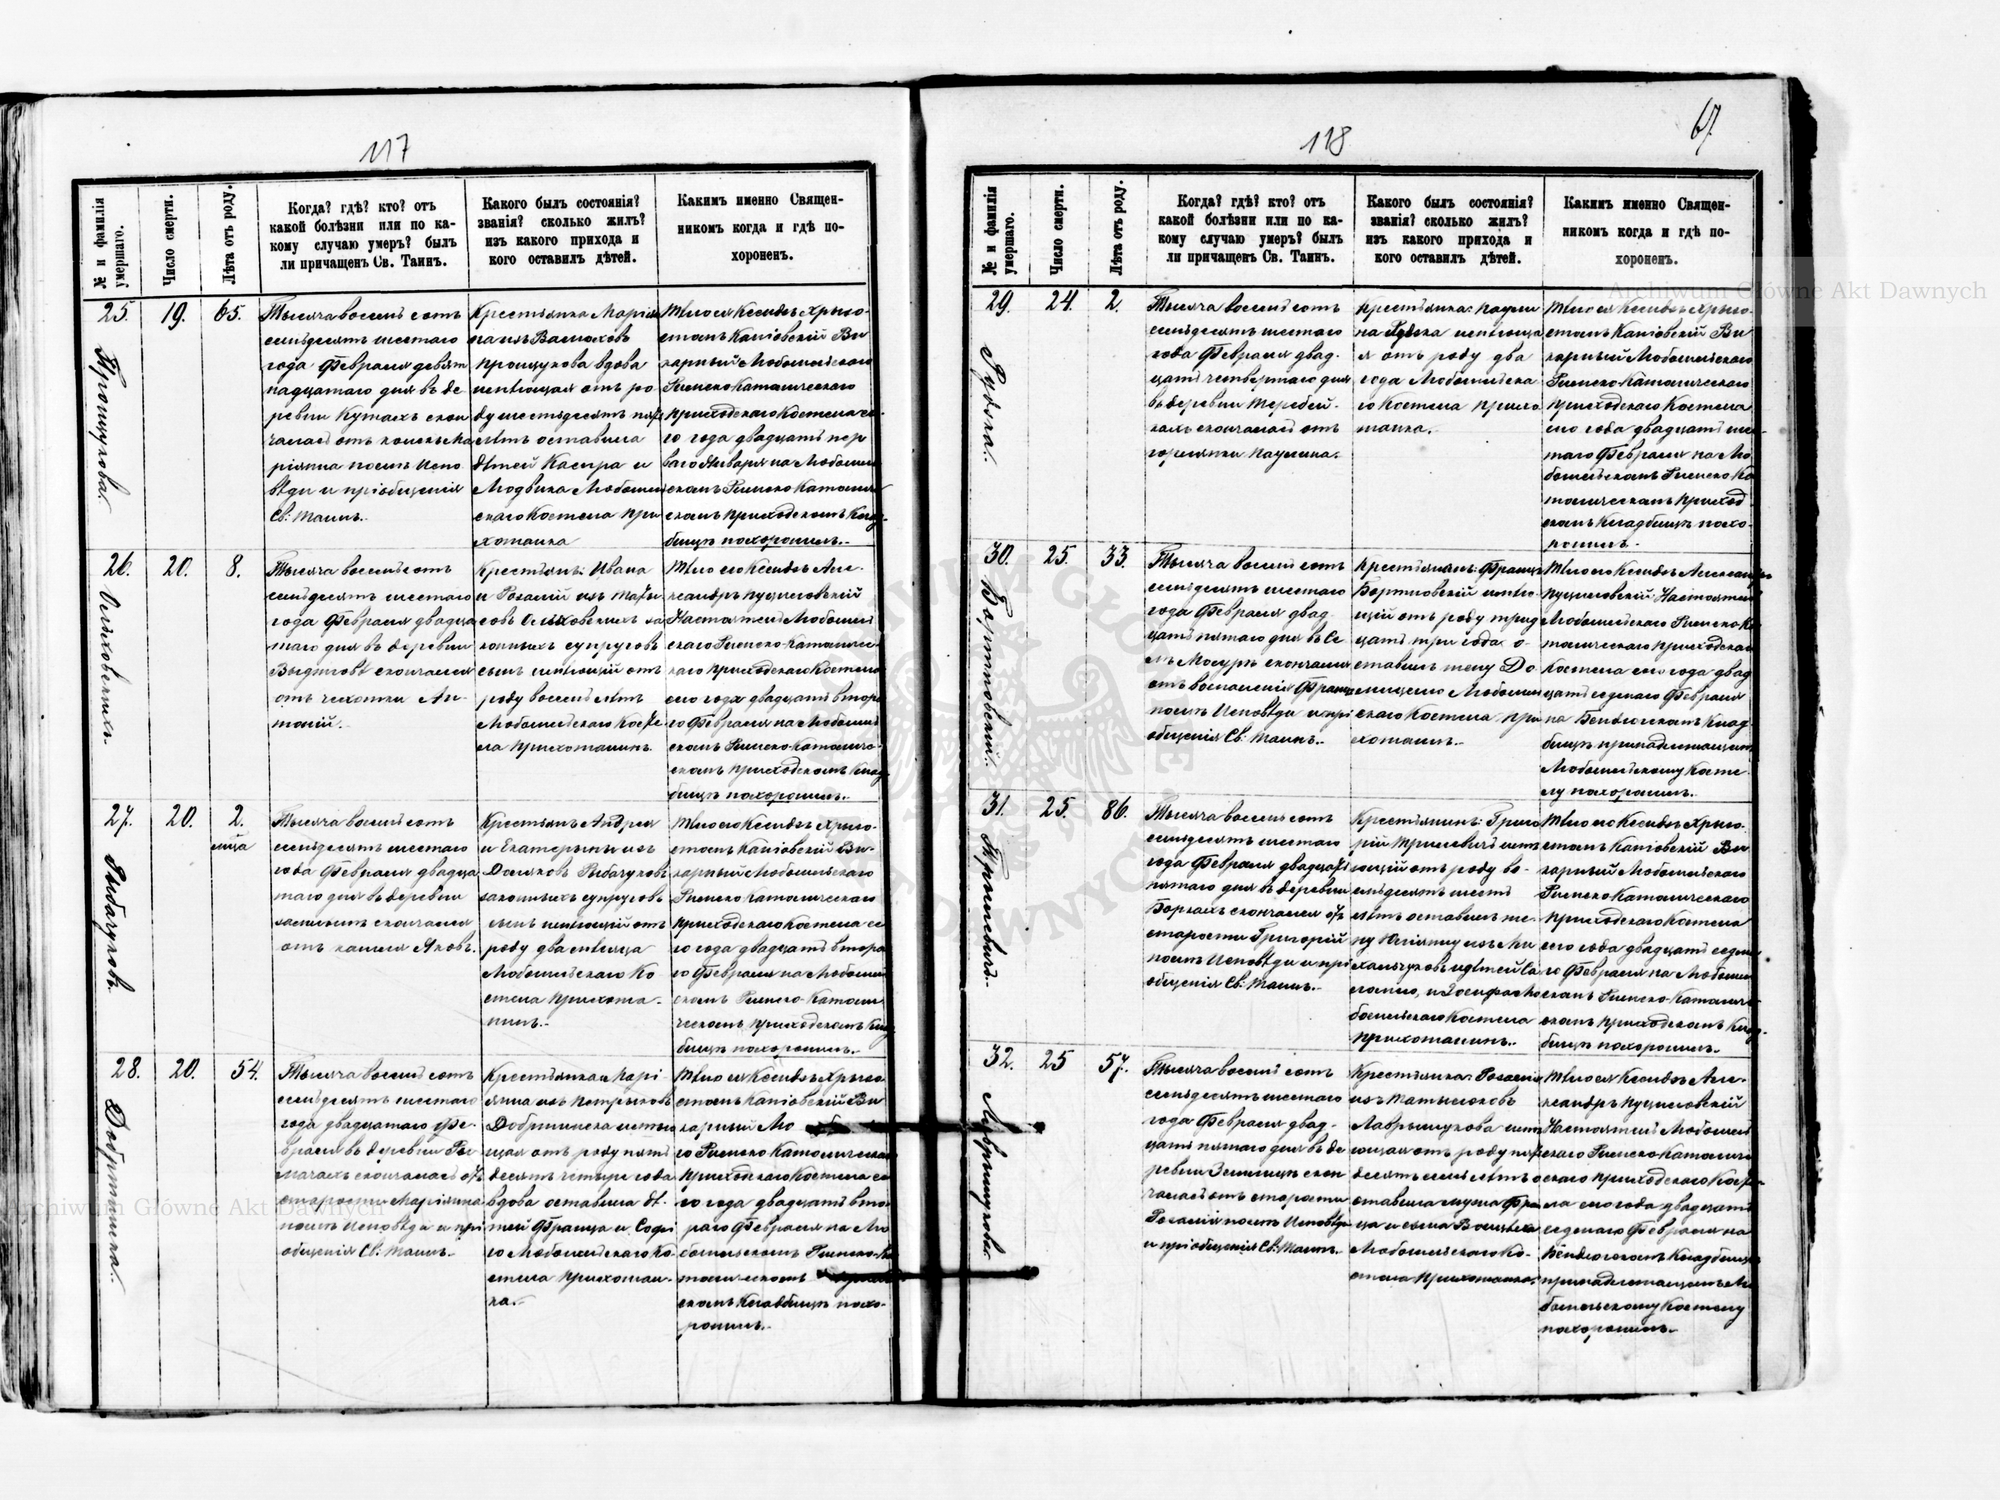 117
№ и фамилія умершаго.
Число смерти.
Лѣта отъ роду.
Когда? гдѣ? кто? отъ
какой болѣзни или по ка-
кому случаю умеръ? былъ
ли причащенъ Св. Таинъ.
Какого былъ состоянія?
званія? сколько жилъ?
изъ какого прихода и
кого оставилъ дѣтей.
Какимъ именно Священ-
никомъ когда и гдѣ по-
хороненъ.
25. 19. 65.
Прощукова.
Тысяча восемь сотъ
семьдесятъ шестаго
года Февраля девят
надцатаго дня въ де
ревни Кутахъ скон
чалась отъ
ріянна послѣ Испо
вѣди и пріобщенія
Св: Таинъ.
Крестьянка Марія
нна изъ
Прощукова вдова
имѣющая отъ ро
ду шестьдесятъ пять
лѣтъ оставила
дѣтей Каспра и
Людвика Любомль
скаго Костела при
хожанка
Тѣло ея Ксендзъ Хрызо
стомъ Капіовскій Ви
карный Любомльскаго
Римско Католическаго
приходскаго Костела се
го года двадцать пер
ваго Января на Любомль
скомъ Римско Католиче
скомъ приходскомъ Клад
бищѣ похоронилъ.
26. 20. 8.
Ольховскихъ.
Тысяча восемь сотъ
семьдесятъ шестаго
года Февраля двадца
таго дня въ деревни
скончался
отъ чахотки Ан-
тоній.
Крестьянъ: Ивана
и Розаліи изъ
Ольховскихъ за
конныхъ супруговъ
сынъ имѣющій отъ
роду восемь лѣтъ
Любомльскаго Косте
ла прихожанинъ
Тѣло его Ксендзъ Але-
ксандръ Пуциловскій
Настоятель Любомль
скаго Римско-Католиче
скаго приходскаго Костела
сего года двадцать второ
го Февраля на Любомль
скомъ Римско Католиче-
скомъ приходскомъ Клад
бищѣ похоронилъ.
27. 20. 2.
мѣсяца
Рыбачуковъ.
Тысяча восемь сотъ
семьдесятъ шестаго
года Февраля двадца
таго дня въ деревни
скончался
отъ кашля Яковъ.
Крестьянъ Андрея
и Екатерины изъ
Рыбачуковъ
законныхъ супруговъ
сынъ имѣющій отъ
роду два мѣсяца
Любомльскаго Ко-
стела прихожа-
нинъ.
Тѣло его Ксендзъ Хрызо-
стомъ Капіовскій Ви-
карный Любомльскаго
Римско Католическаго
приходскаго Костела се
го года двадцать второ
го Февраля на Любомль
скомъ Римско-Католи
ческомъ приходскомъ Клад
бищѣ похоронилъ.
28. 20. 54.
Добртинска.
Тысяча восемь сотъ
семьдесятъ шестаго
года двадцатаго Фе-
враля въ деревни
скончалась отъ
старости Маріянна
послѣ Исповѣди и прі
общенія Св: Таинъ.
Крестьянка Марі-
янна изъ Петрыковъ
Добртинска имѣю
щая отъ роду пять
десятъ четыре года
вдова оставила дѣ-
тей Франца и Софі
ю Любомльскаго Ко-
стела прихожан-
ка.
Тѣло ея Ксендзъ Хрызо
стомъ Капіовскій Ви
карный Лю
го Римско Католическаго
приходскаго Костела се
го года двадцать вто-
раго Февраля на Лю
бомльскомъ Римско-Ка
толическомъ
скомъ Кладбищѣ похо-
ронилъ.
118
67
№ и фамилія умершаго.
Число смерти.
Лѣта отъ роду.
Когда? гдѣ? кто? отъ
какой болѣзни или по ка-
кому случаю умеръ? былъ
ли причащенъ Св. Таинъ.
Какого былъ состоянія?
званія? сколько жилъ?
изъ какого прихода и
кого оставилъ дѣтей.
Какимъ именно Священ-
никомъ когда и гдѣ по-
хороненъ.
29. 24. 2.
Рудзка.
Тысяча восемь сотъ
семьдесятъ шестаго
года Февраля двад-
цать четвертаго дня
въ деревни Теребей-
кахъ скончалась отъ
горячки Паулина.
Крестьянка: Паули
на Рудзка имѣюща
я отъ роду два
года Любомльска
го Костела прихо
жанка.
Тѣло ея Ксендзъ Хрызо-
стомъ Капіовскій Ви
карный Любомльскаго
Римско-Католическаго
приходскаго Костела
сего года двадцать ше-
таго Февраля на Лю
бомльскомъ Римско Ка
толическомъ приход
скомъ Кладбищѣ похо-
ронилъ.
30. 25. 33.
Бортновскій.
Тысяча восемь сотъ
семьдесятъ шестаго
года Февраля двад-
цать пятаго дня въ Се
лѣ Мосуръ скончался
отъ воспаленія Францъ
послѣ Исповѣди и прі
общенія Св: Таинъ.
Крестьянинъ: Францъ
Бортновскій имѣю-
щій отъ роду трид
цать три года о-
ставилъ жену До
мицелю Любомль
скаго Костела при
хожанинъ.
Тѣло его Ксендзъ Александръ
Пуциловскій Настоятель
Любомльскаго Римско-Ка
толическаго приходскаго
Костела сего года двад
цать седмаго Февраля
на Бендюгскомъ Клад
бищѣ принадлежащемъ
Любомльскому Косте
лу похоронилъ.
31. 25. 86.
Трысевичъ.
Тысяча восемь сотъ
семьдесятъ шестаго
года Февраля двадцать
пятаго дня въ деревни
Боркахъ скончался отъ
старости Григорій
послѣ Исповѣди и прі
общенія Св: Таинъ.
Крестьянинъ: Григо
рій Трысевичъ имѣ
ющій отъ роду во-
семьдесятъ шесть
лѣтъ оставилъ же-
ну Юліянну изъ Ми
хальчуковъ и дѣтей
и Іосифа Лю
бомльскаго Костела
прихожанинъ.
Тѣло его Ксендзъ Хрызо-
стомъ Капіовскій Ви
карный Любомльскаго
Римско-Католическаго
приходскаго Костела
сего года двадцать седма
го Февраля на Любомль
скомъ Римско-Католиче-
скомъ приходскомъ Клад-
бищѣ похоронилъ.
32. 25 57.
Лаврышукова.
Тысяча восемь сотъ
семьдесятъ шестаго
года Февраля двад-
цать пятаго дня въ де
ревни Землицѣ скон
чалась отъ старости
Розалія послѣ Исповѣди
и пріобщенія Св: Таинъ.
Крестьянка: Розалія
изъ Матысюковъ
Лаврышукова имѣ
ющая отъ роду пять
десятъ семь лѣтъ о
ставила мужа Фран
ца и сына Войцѣха
Любомльскаго Ко-
стела прихожанка.
Тѣло ея Ксендзъ Але-
ксандръ Пуциловскій
Настоятель Любомль
скаго Римско-Католиче
скаго приходскаго Косте
ла сего года двадцать
седмаго Февраля на
Бендюгскомъ Кладбищѣ
принадлежащемъ Лю
бомльскому Костелу
похоронилъ.
Archiwum Główne Akt Dawnych
Archiwum Główne Akt Dawnych